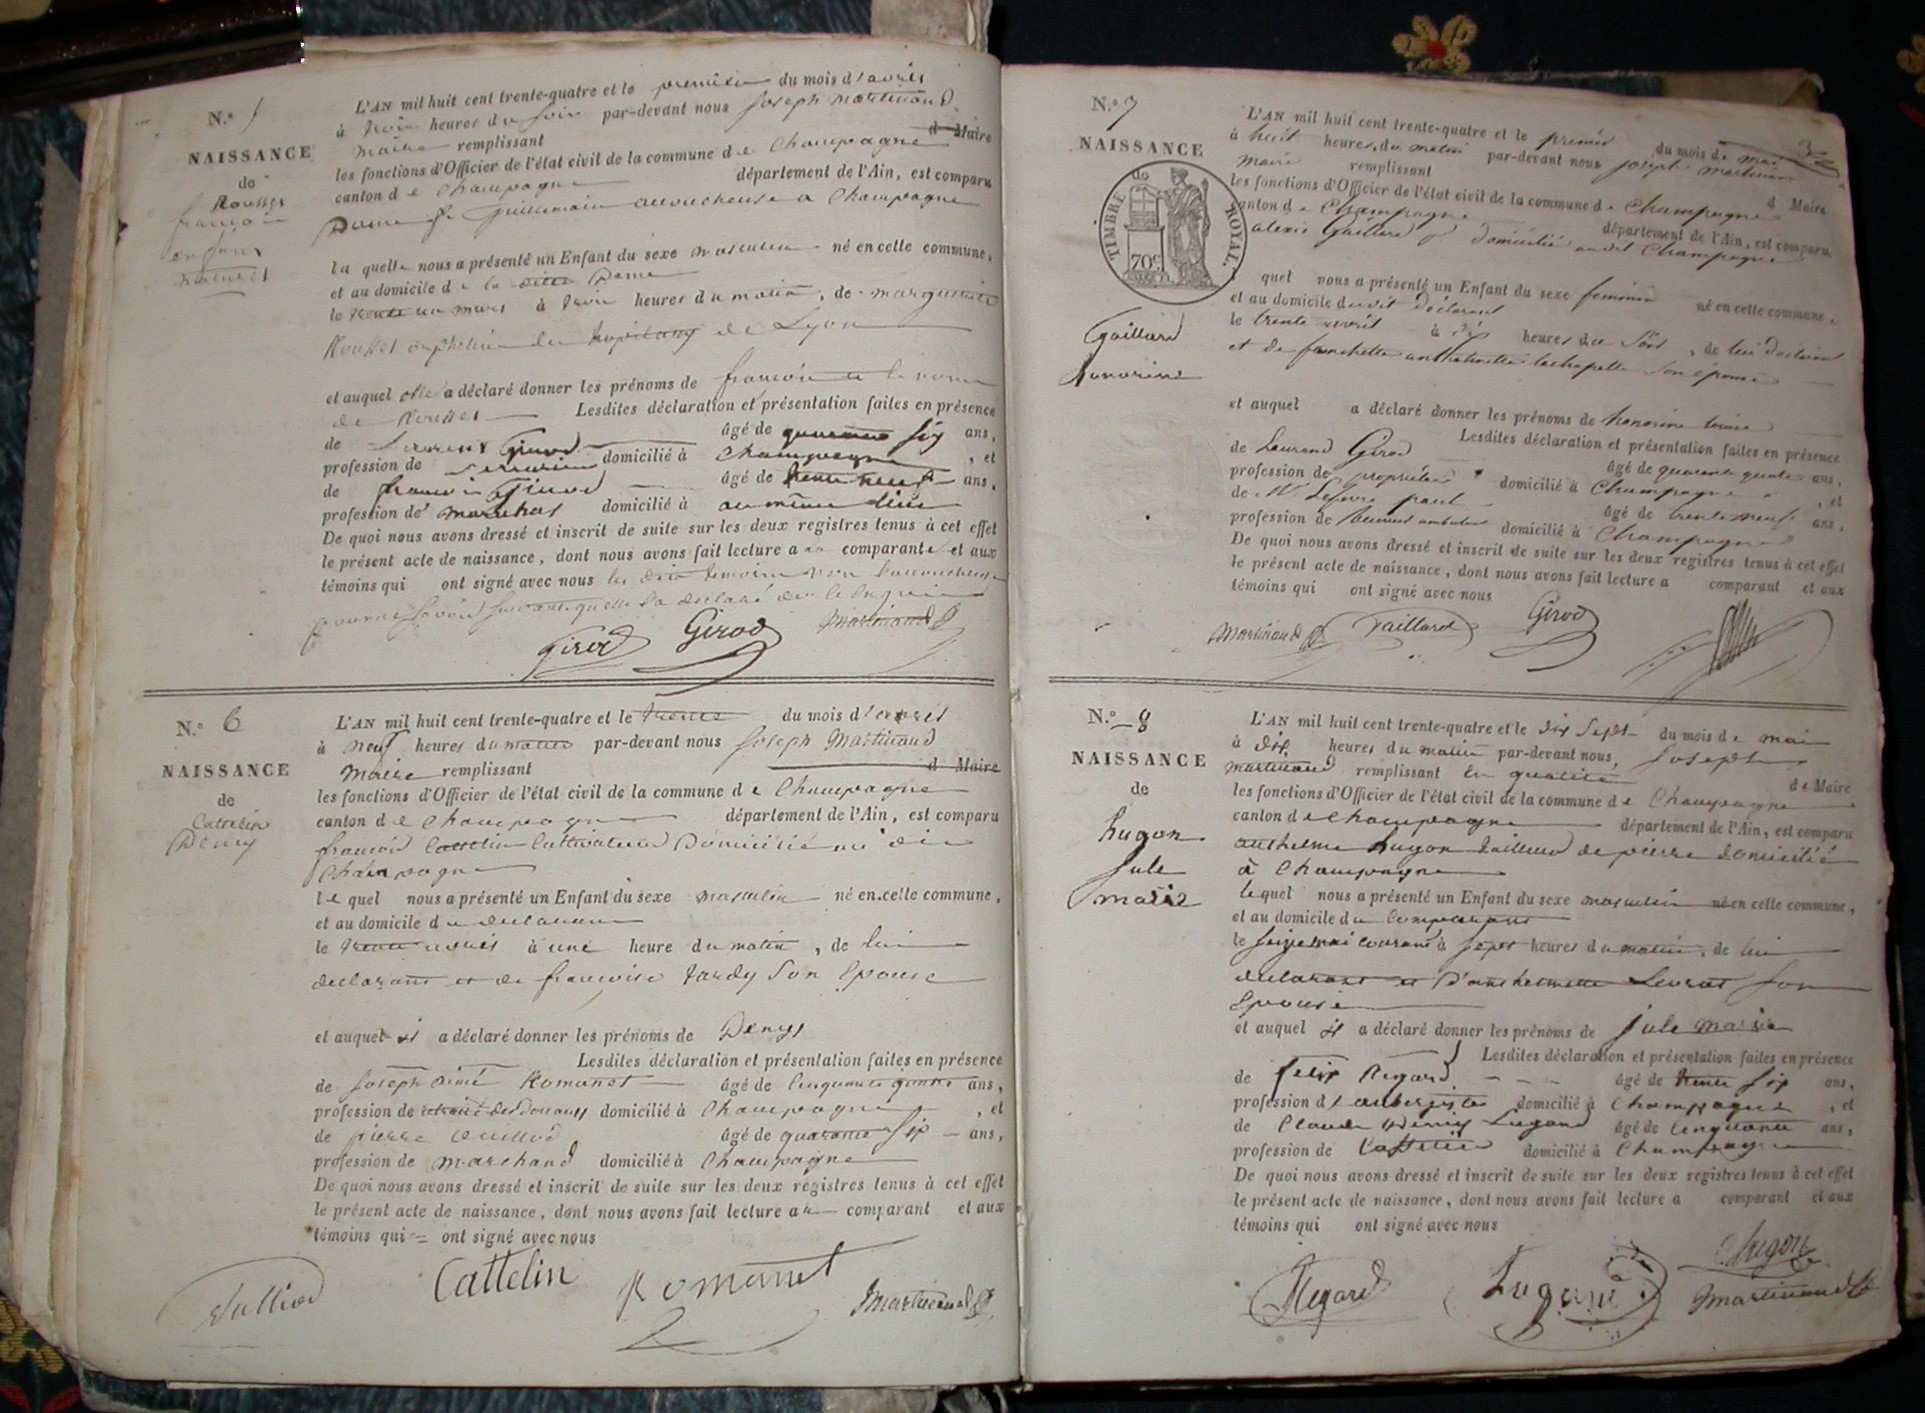 N.° 5
NAISSANCE
de
Rousset
françois
enfant
naturel
L'AN mil huit cent trente-quatre et le premier du mois d'avril
à trois heures du soir par-devant nous Joseph Martinand
maire remplissant d Maire
les fonctions d'Officier de l'état civil de la commune de Champagne
canton de Champagne département de l'Ain, est comparu
Dame Guillemain accoucheuse a Champagne
la quelle nous a présenté un Enfant du sexe masculin né en celle commune,
et au domicile de la ditte Dame
le trente un mars à trois heures du matin, de marguerite
Rousset orpheline des hopitaux de Lyon
et auquel elle a déclaré donner les prénoms de françois et le nom
de Rousset Lesdites déclaration et présentation faites en présence
de Laurent Girod âgé de quarante six ans,
profession de serrurier domicilié à Champagne, et
de françois Girod âgé de trente neuf ans,
profession de marechal domicilié à au même lieu
De quoi nous avons dressé et inscrit de suite sur les deux registres tenus à cet effet
le présent acte de naissance, dont nous avons fait lecture a comparante et aux
témoins qui ont signé avec nous les dits temoins non l'accoucheuse
pour ne savoir qu'elle l'a declaré de ce enquise
Girod Girod Martinand
N.° 6
NAISSANCE
de
Cattelin
Denys
L'AN mil huit cent trente-quatre et le trente du mois d'avril
à neuf heures du matin par-devant nous Joseph Martinand
Maire remplissant d Maire
les fonctions d'Officier de l'état civil de la commune de Champagne
canton de Champagne département de l'Ain, est comparu
françois Cattelin Cultivateur Domicilié au dit
Champagne
le quel nous a présenté un Enfant du sexe masculin né en celle commune,
et au domicile du declarant
le trente avril à une heure du matin, de lui
declarant et de françoise tardy son Epouse
et auquel il a déclaré donner les prénoms de Denys
Lesdites déclaration et présentation faites en présence
de Joseph aimé Romanet âgé de cinquante quatre ans,
profession de retraité des douanes domicilié à Champagne, et
de pierre Vuilliod âgé de quarante six ans,
profession de marchand domicilié à Champagne
De quoi nous avons dressé et inscrit de suite sur les deux registres tenus à cet effet
le présent acte de naissance, dont nous avons fait lecture au comparant et aux
témoins qui ont signé avec nous
Cattelin Romanet Martinand
N.° 7
NAISSANCE
de
TIMBRE ROYAL.
70c
Gaillard
honorine
L'AN mil huit cent trente-quatre et le premier du mois de mai
à huit heures du matin par-devant nous Joseph Martinand
maire remplissant d Maire
les fonctions d'Officier de l'état civil de la commune de Champagne
canton de Champagne département de l'Ain, est comparu
alexis Gaillard domicilié audit Champagne
quel nous a présenté un Enfant du sexe feminin né en celle commune,
et au domicile dudit déclarant
le trente avril à dix heures du soir, de lui declarant
et de franchette anthelmette lachapelle son épouse
et auquel a déclaré donner les prénoms de honorine
Lesdites déclaration et présentation faites en présence
de Laurend Girod âgé de quarente quatre ans,
profession de propriétaire domicilié à Champagne, et
de Mr Lefevre paul âgé de trente neuf ans,
profession de ambulant domicilié à Champagne
De quoi nous avons dressé et inscrit de suite sur les deux registres tenus à cet effet
le présent acte de naissance, dont nous avons fait lecture a comparant et aux
témoins qui ont signé avec nous
Martinand Gaillard Girod
N.° 8
NAISSANCE
de
hugon
Jule
marie
L'AN mil huit cent trente-quatre et le dix sept du mois de mai
à dix heures du matin par-devant nous, Joseph
martinand remplissant en qualité de Maire
les fonctions d'Officier de l'état civil de la commune de Champagne
canton de Champagne département de l'Ain, est comparu
anthelme hugon tailleur de pierre domicilié
à Champagne
le quel nous a présenté un Enfant du sexe masculin né en celle commune,
et au domicile du comparant
le seize mai courant à sept heures du matin, de lui
declarant et D'anthelmette Levrat son
Epouse
et auquel il a déclaré donner les prénoms de Jule marie
Lesdites déclaration et présentation faites en présence
de felix Regard âgé de trente six ans,
profession d'aubergiste domicilié à Champagne, et
de Claude Denis Lugand âgé de cinquante ans,
profession de Cafetier domicilié à Champagne
De quoi nous avons dressé et inscrit de suite sur les deux registres tenus à cet effet
le présent acte de naissance, dont nous avons fait lecture a comparant et aux
témoins qui ont signé avec nous
hugon
Regard Lugand Martinand